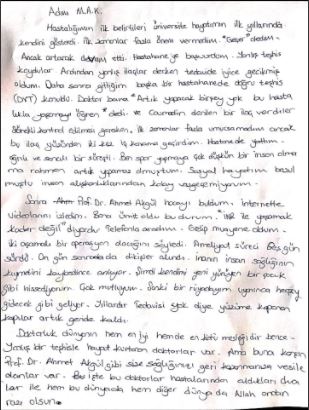 Adım M.A.K.
Hastalığımın ilk belirtileri üniversite hayatımın ilk yıllarında
kendini gösterdi. İlk zamanlar fazla önem vermedim. "Geçer" dedim.
Ancak artarak devam etti. Hastaneye başvurdum. Yanlış teşhis
koydular. Ardından yanlış ilaçlar derken tedavide iyice gecikmiş
oldum. Daha sonra gittiğim başka bir hastanerede doğru teşhis
(DVT) konuldu. Doktor bana "Artık yapacak birşey yok bu hasta
lıkla yaşamayı öğren." dedi ve Coumadin denilen bir ilaç verdiler
Sürekli kontrol edilmesi gereken, ilk zamanlar fazla umursamadım ancak
bu ilaç yüzünden iki kez iç kanama geçirdim. Hastanede yattım.
ağrılı ve sancılı bir süreçti. Ben spor yapmaya çok düşkün bir insan olma
ma rağmen artık yapamaz olmuştum. Sosyal hayatım bozul
muştu insan alışkanlıklarından kolay vazgeçemiyorum.
Sonra Prof. Dr. Ahmet Akgül hocayı buldum. İnternette
videolarını izledim. Bana ümit oldu bu durum. " ile yaşamak
kader değil" diyordu. Telefonla aradım. Gelip muayene oldum.
iki aşamalı bir operasyon olacağını söyledi. Ameliyat süreci Beş gün
sürdü. On gün sonrasında dikişler alındı. İnanın insan sağlığının
kıymetini kaybedince anlıyor. Şimdi kendimi yeni yürüyen bir çocuk
gibi hissediyorum. Çok mutluyum. Sanki bir rüyadayım yanınca hasçey
gidecek gibi geliyor. Yıllardır Tedavisi yok diye yüzüme kapanan
kapılar artık geride kaldı.
Doktorluk dünyanın hem en iyi hemde en kötü mesleğidir bence.
Yanlış bir teşhisle hayat kurtaran doktorlar var. Ama buna karşın
Prof. Dr. Ahmet Akgül gibi size sağlığınızı geri kazanmanıza vesile
olanlar var. Bu işte bu doktorlar hastalarından aldıkları dua
lar ile hem bu dünyada hem diğer dünyada Allah ondan
razı olsun.